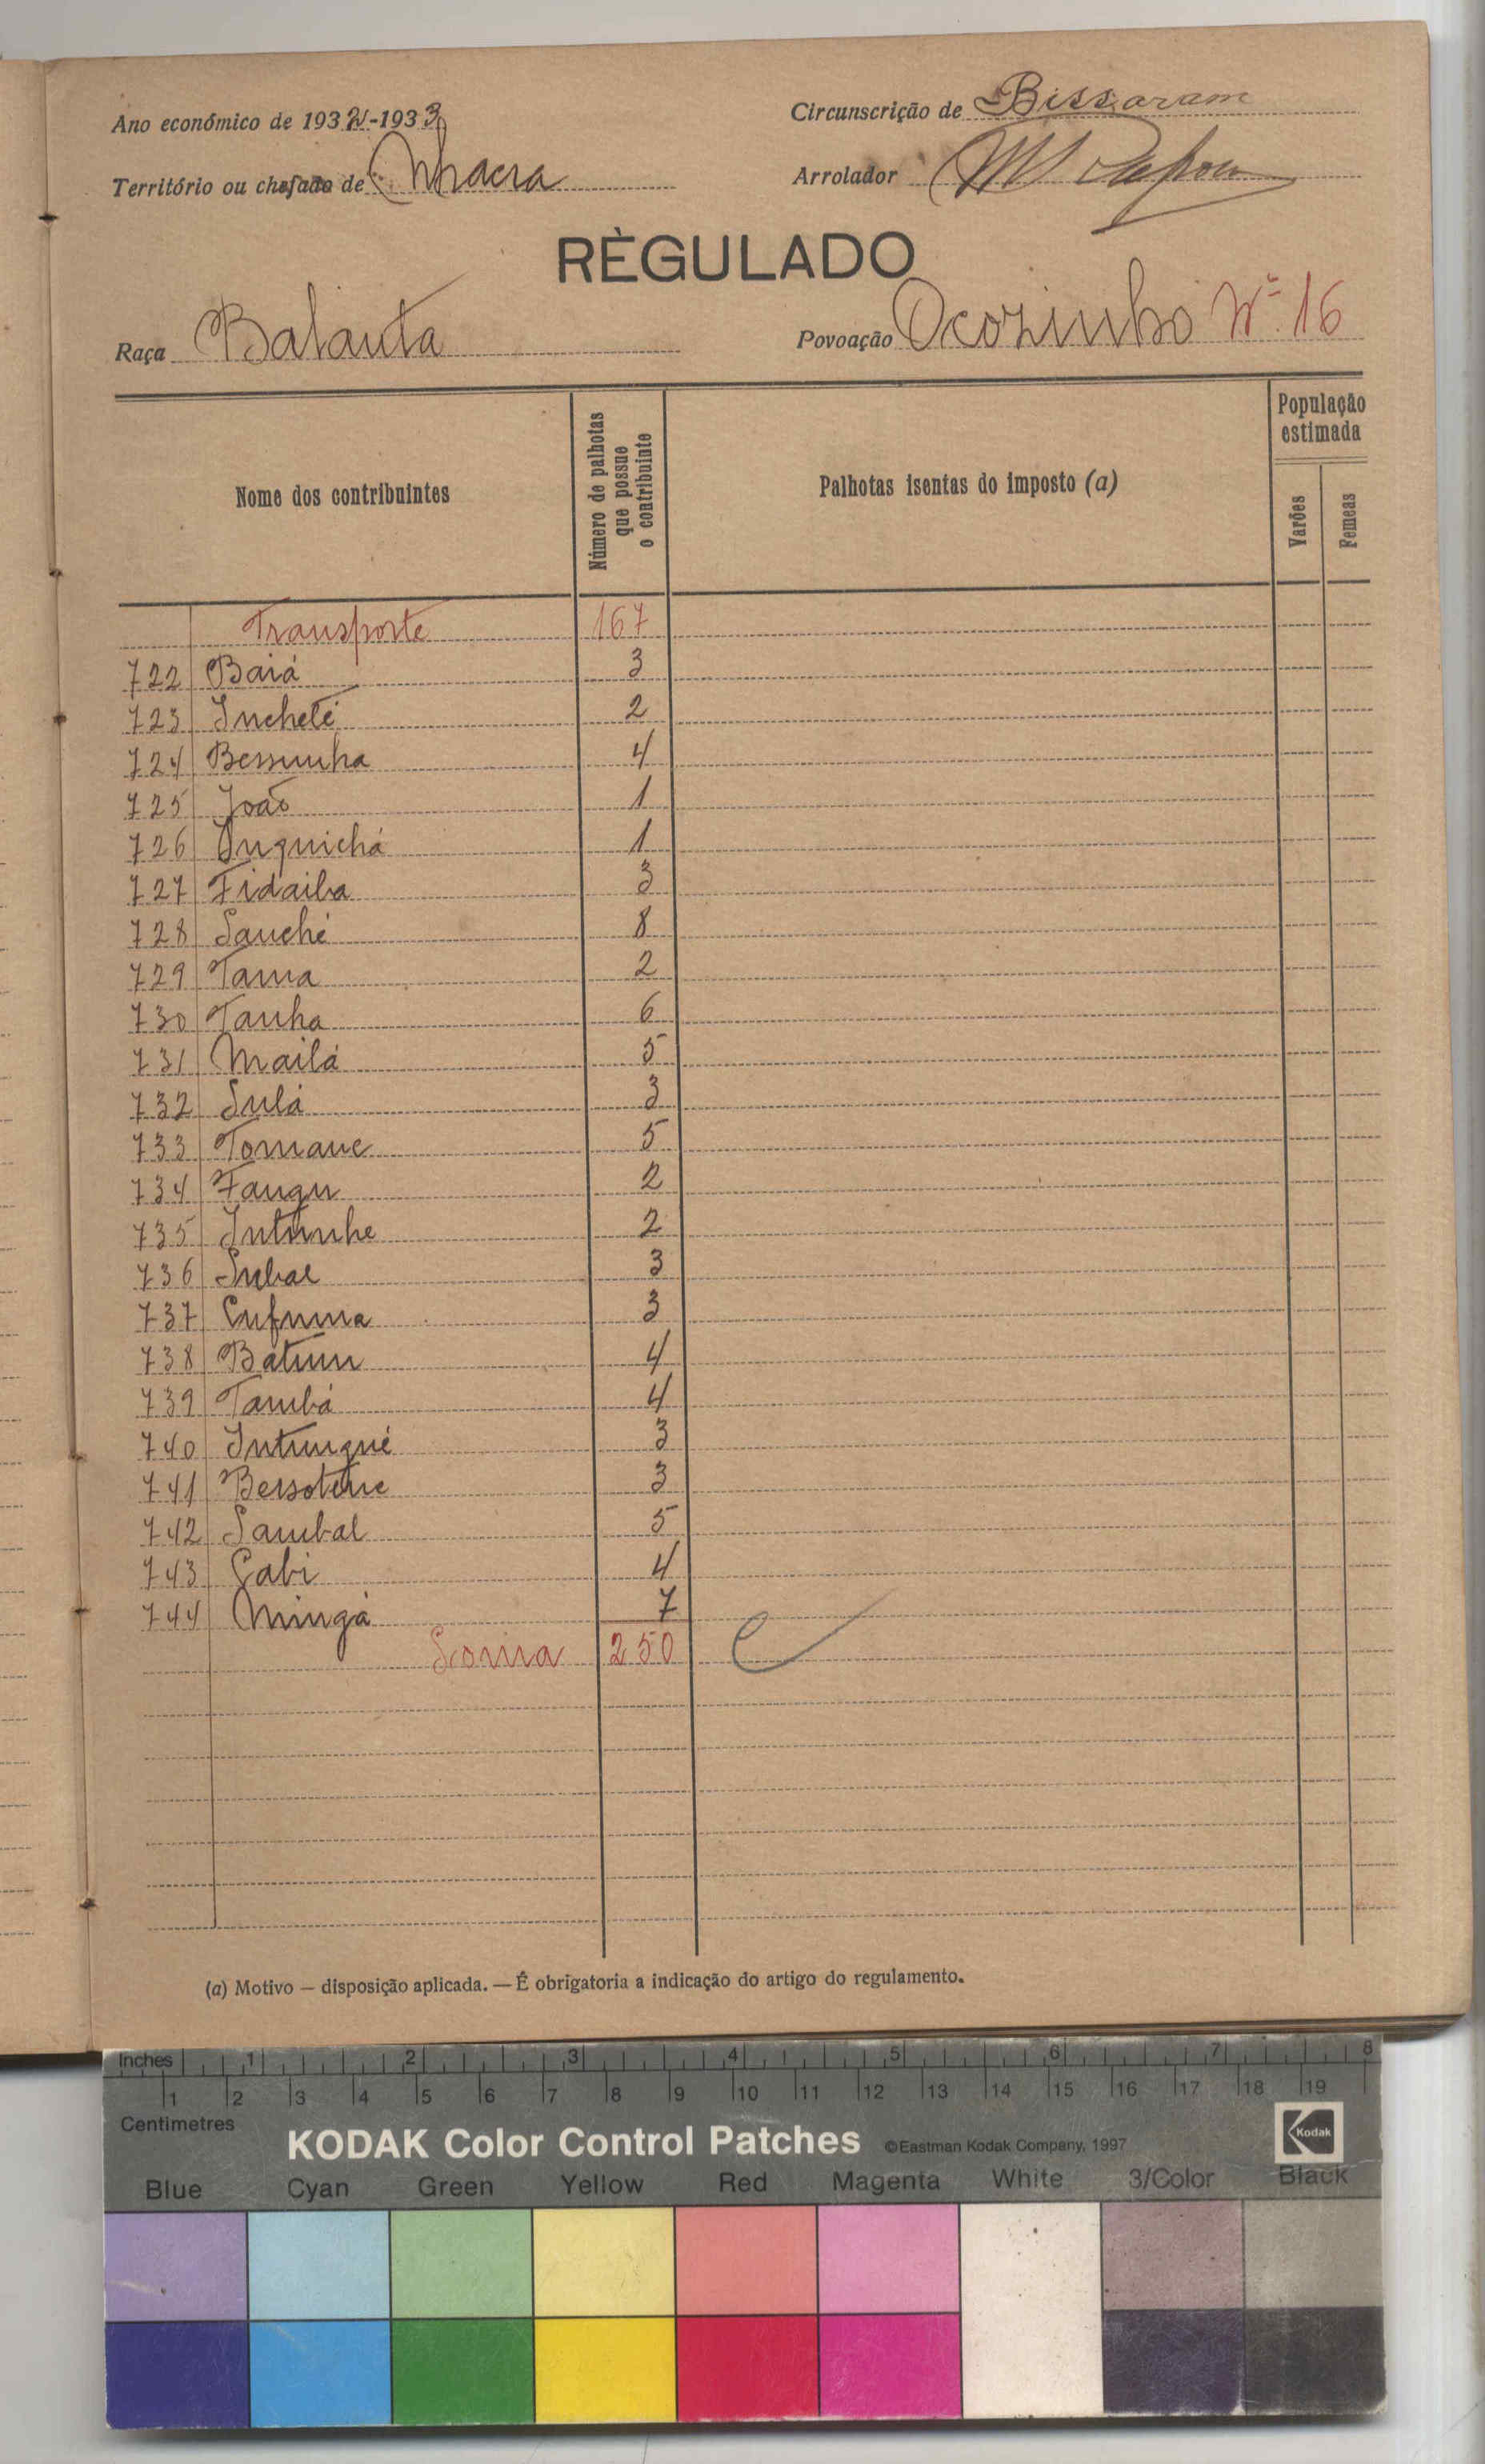 Ano económico de 1932-1933
Circunscrição de Bissoram
Território ou chefado de Nhacra
Arrolador
RÈGULADO
Raça Balanta
Povoação Ocozinho Nº 16
Nome dos contribuintes
Número de palhotas que possue o contribuinte
Palhotas isentas do imposto (a)
População estimada
Varões
Femeas
Transporte 167
722 Baiá 3
723 Incheté 2
724 Bessunha 4
725 João 1
726 Inquichá 1
727 Fidaiba 3
728 Sanché 8
729 Tama 2
730 Tanha 6
731 Mailá 5
732 Sulá 3
733 Tomane 5
734 Fangu 2
735 Intunhe 2
736 Subal 3
737 Cufuma 3
738 Batum 4
739 Tambá 4
740 Intungué 3
741 Bessotene 3
742 Sambal 5
743 Çabi 4
744 Mingá 7
Soma 250
(a) Motivo — disposição aplicada. — É obrigatoria a indicação do artigo do regulamento.
Inches 1 2 3 4 5 6 7 8
1 2 3 4 5 6 7 8 9 10 11 12 13 14 15 16 17 18 19
Centimetres
KODAK Color Control Patches ©Eastman Kodak Company, 1997 Kodak
Blue Cyan Green Yellow Red Magenta White 3/Color Black